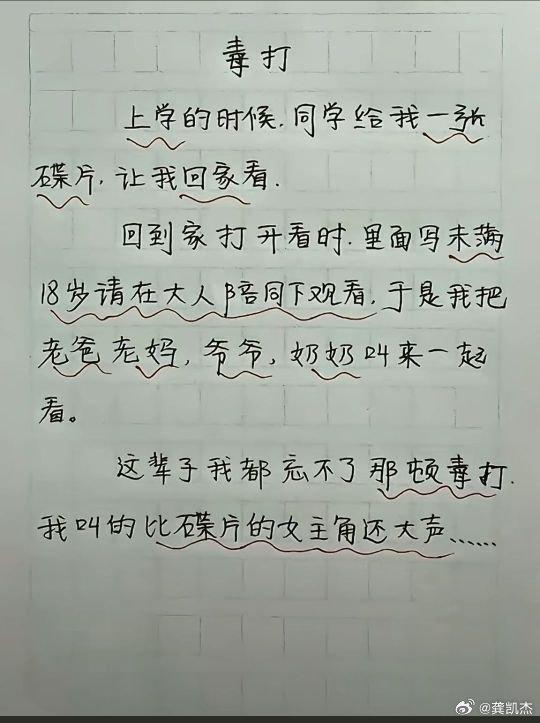 毒打
上学的时候,同学给我一张
碟片,让我回家看.
回到家打开看时.里面写未满
18岁请在大人陪同下观看,于是我把
老爸老妈,爷爷,奶奶叫来一起
看。
这辈子我都忘不了那顿毒打.
我叫的比碟片的女主角还大声……
@龚凯杰